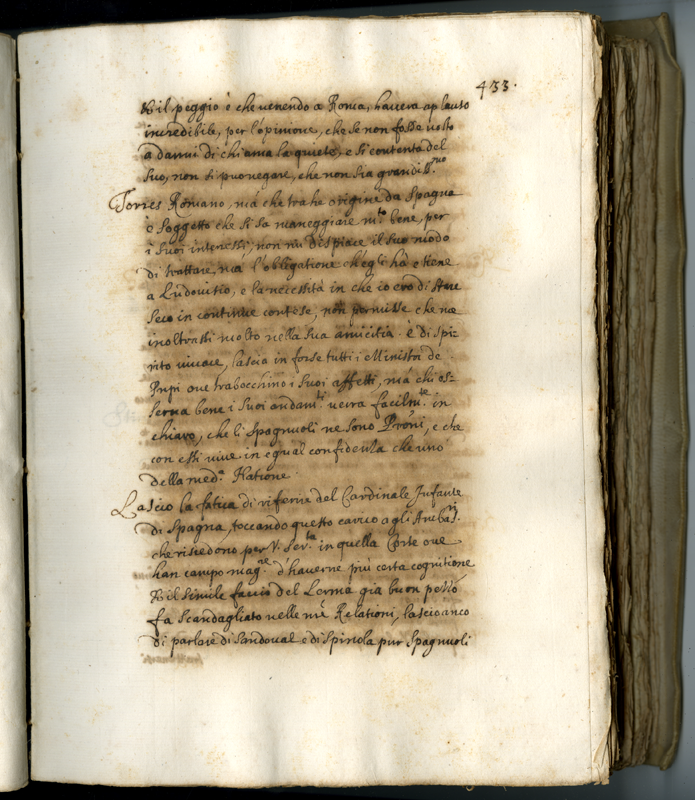 433.
Et il peggio è che venendo a Roma, havera aplauso
incredibile, per l'opinione, che se non fosse volto
a danni di chi ama la quiete, e si contenta del
suo, non si può negare, che non sia grandiss.mo
Torres Romano, ma che trahe origine da Spagna
è soggetto che si sa maneggiare m.to bene, per
i suoi interessi, non mi dispiace il suo modo
di trattare, ma l'obligatione ch'egli hà e tiene
a Ludovisio, e la necessità in che io ero di stare
seco in continue contese, non permisse che me
inoltrassi molto nella sua amicitia. è di spi:
rito vivace, lascia in forse tutti i Ministri de
Prnpi ove trabocchino i suoi affetti, mà chi os:
serva bene i suoi andam.ti verra facilm.te in
chiaro, che li Spagnuoli ne sono Pròni, e che
con essi vive in equal confidenza che uno
della med.a Natione.
Lascio la fatica di riferire del Cardinale Infante
di Spagna, toccando questo carico agli Amba.ri
che risiedono per V. Ser.ta in quella Corte ove
han campo mag.re d'haverne più certa cognitione
Et il simile faccio del Lerma già buon pezzo
fa scandagliato nelle mie Relationi, lascio anco
di parlare di Sandoval e di Spinola pur Spagnuoli